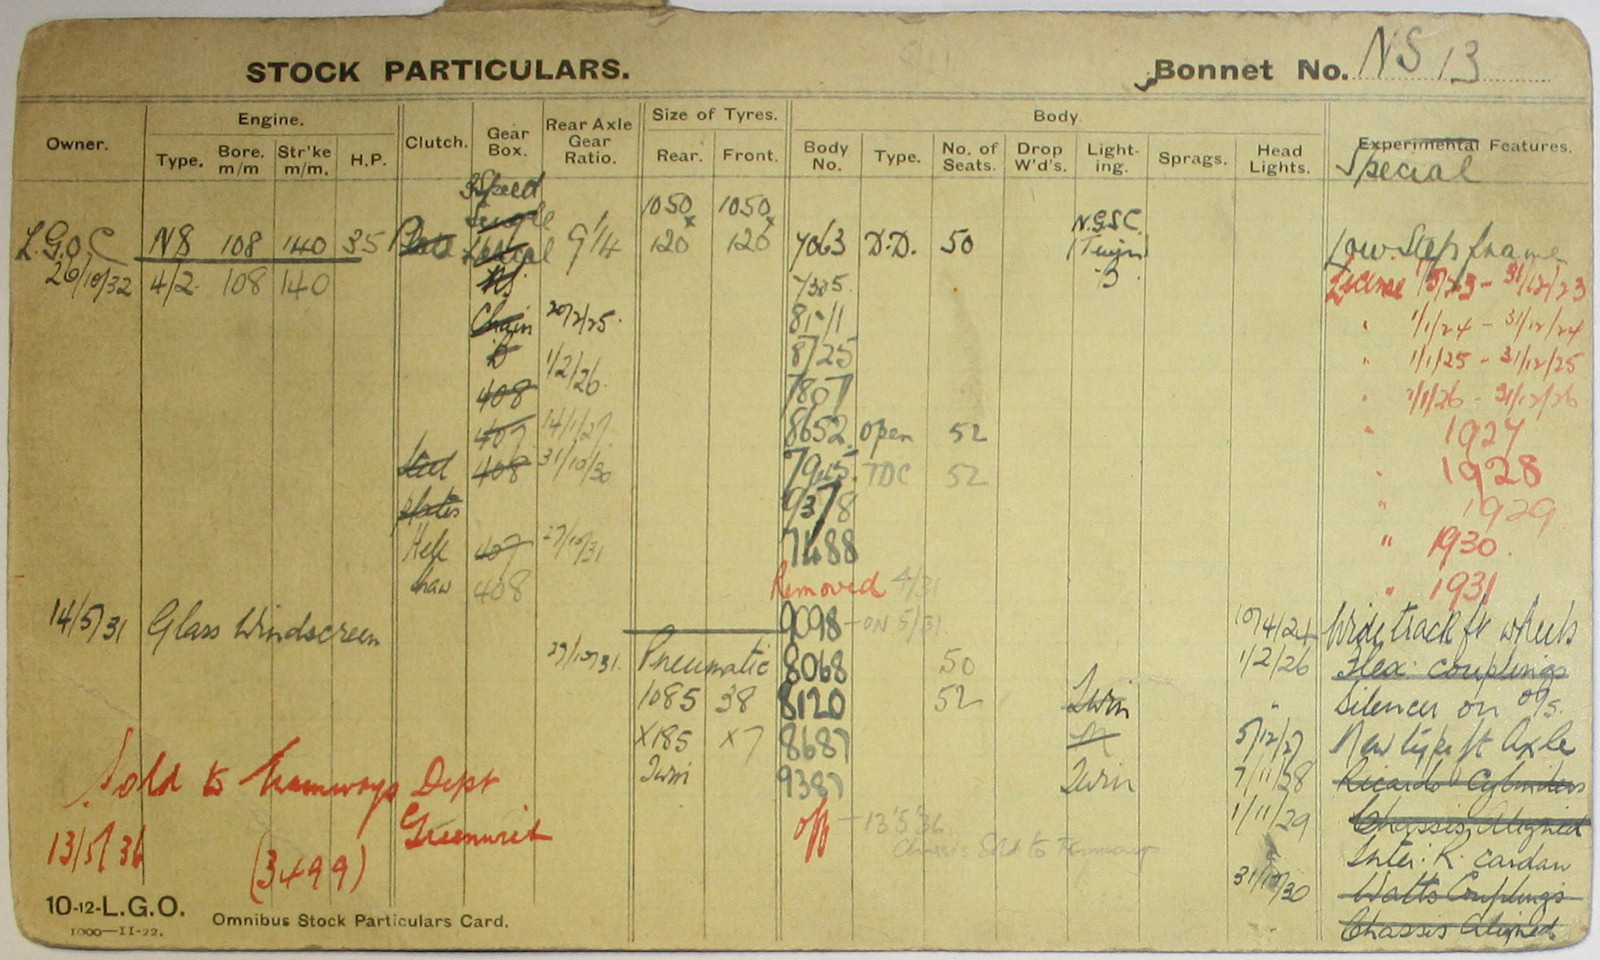 STOCK PARTICULARS. Bonnet No. NS 13
Owner. Engine. Clutch. Gear Box. Rear Axle Gear Ratio. Size of Tyres. Body. Experimental Features.
Type. Bore. m/m Str'ke m/m. H.P. Rear. Front. Body No. Type. No. of Seats. Drop W'd's. Light-ing. Sprags. Head Lights. Special
3 Speed
1050 x 120 1050 x 120 N.G.S.C.
L.G.O.C NS 108 140 35 Plate 9¼ 7063 D.D. 50 Twin Low Step frame
26/10/32 4/2 108 140 NS B
Chain 20/2/25. 8511 " 1/1/24 - 31/12/24
D 1/2/26. 8725 " 1/1/25 - 31/12/25
408 7807 " 1/1/26 - 31/12/26
407. 14/1/27. 8652 Open 52 " 1927
408 31/10/30 TDC 52 " 1928
plates 9378 " 1929
Hele 407 27/10/31 7488 " 1930.
Shaw 408 Removed 4/31 " 1931
14/5/31 Glass Windscreen 9098 - ON 5/31 10/4/24 Wide track ft wheels
27/10/31. Pneumatic 8068 50 1/2/26 Flex: couplings
1085 38 8120 52 Twin " Silencer on o/s.
X185 X7 8687 5/12/27 New type ft Axle
Twin 9387 Twin 7/11/28 Ricardo Cylinders
Sold to Tramways Dept off - 13.5.36 1/11/29 Chassis Aligned
Greenwich Chassis Sold to Tramways
13/5/36 (3499) Inter: R. cardan
31/10/30 Watts Couplings
10-12-L.G.O. Omnibus Stock Particulars Card.
1000—11-22. Chassis Aligned